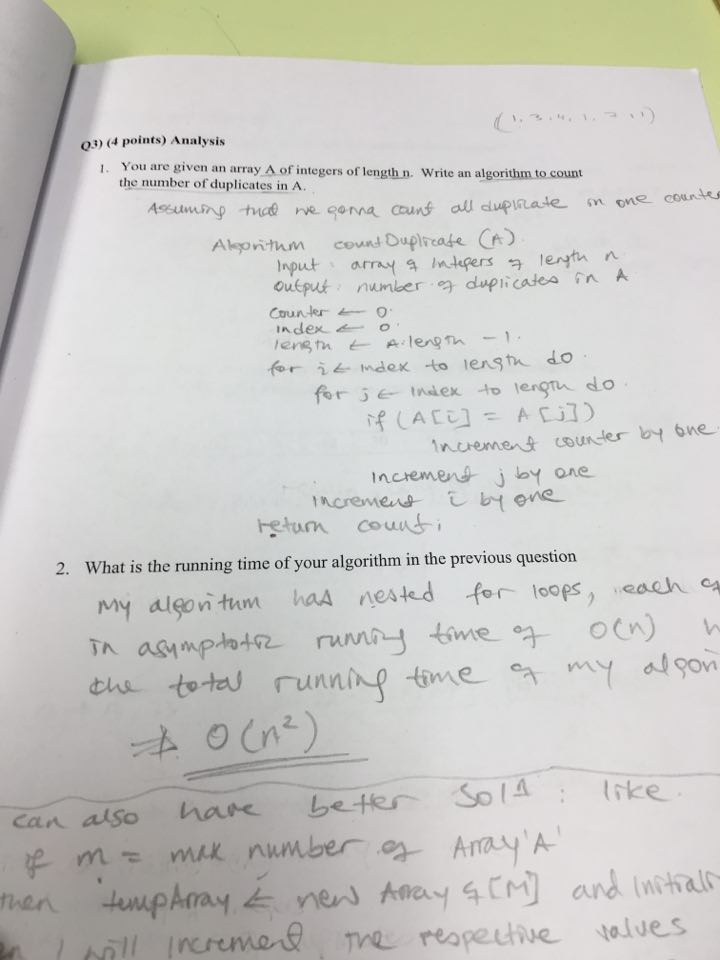 (1, 3, 4, 1, 2, 1)
Q3) (4 points) Analysis
1. You are given an array A of integers of length n. Write an algorithm to count
the number of duplicates in A.
Assuming that we gonna count all duplicate in one counter
Algorithm countDuplicate (A)
Input : array of integers of length n
Output : number of duplicates in A
Counter ← 0
index ← 0
length ← A.length - 1
for i ← index to length do
for j ← index to length do
if (A[i] = A[j])
Increment counter by one
Increment j by one
increment i by one
return count;
2. What is the running time of your algorithm in the previous question
My algoritum has nested for loops, each of
in asymptotic running time of O(n)
the total running time of my algori
⇒ O(n²)
can also have better Sol : like
if m = max number of Array 'A'
then tempArray ← new Array of [M] and Initiali
I will increment the respective values